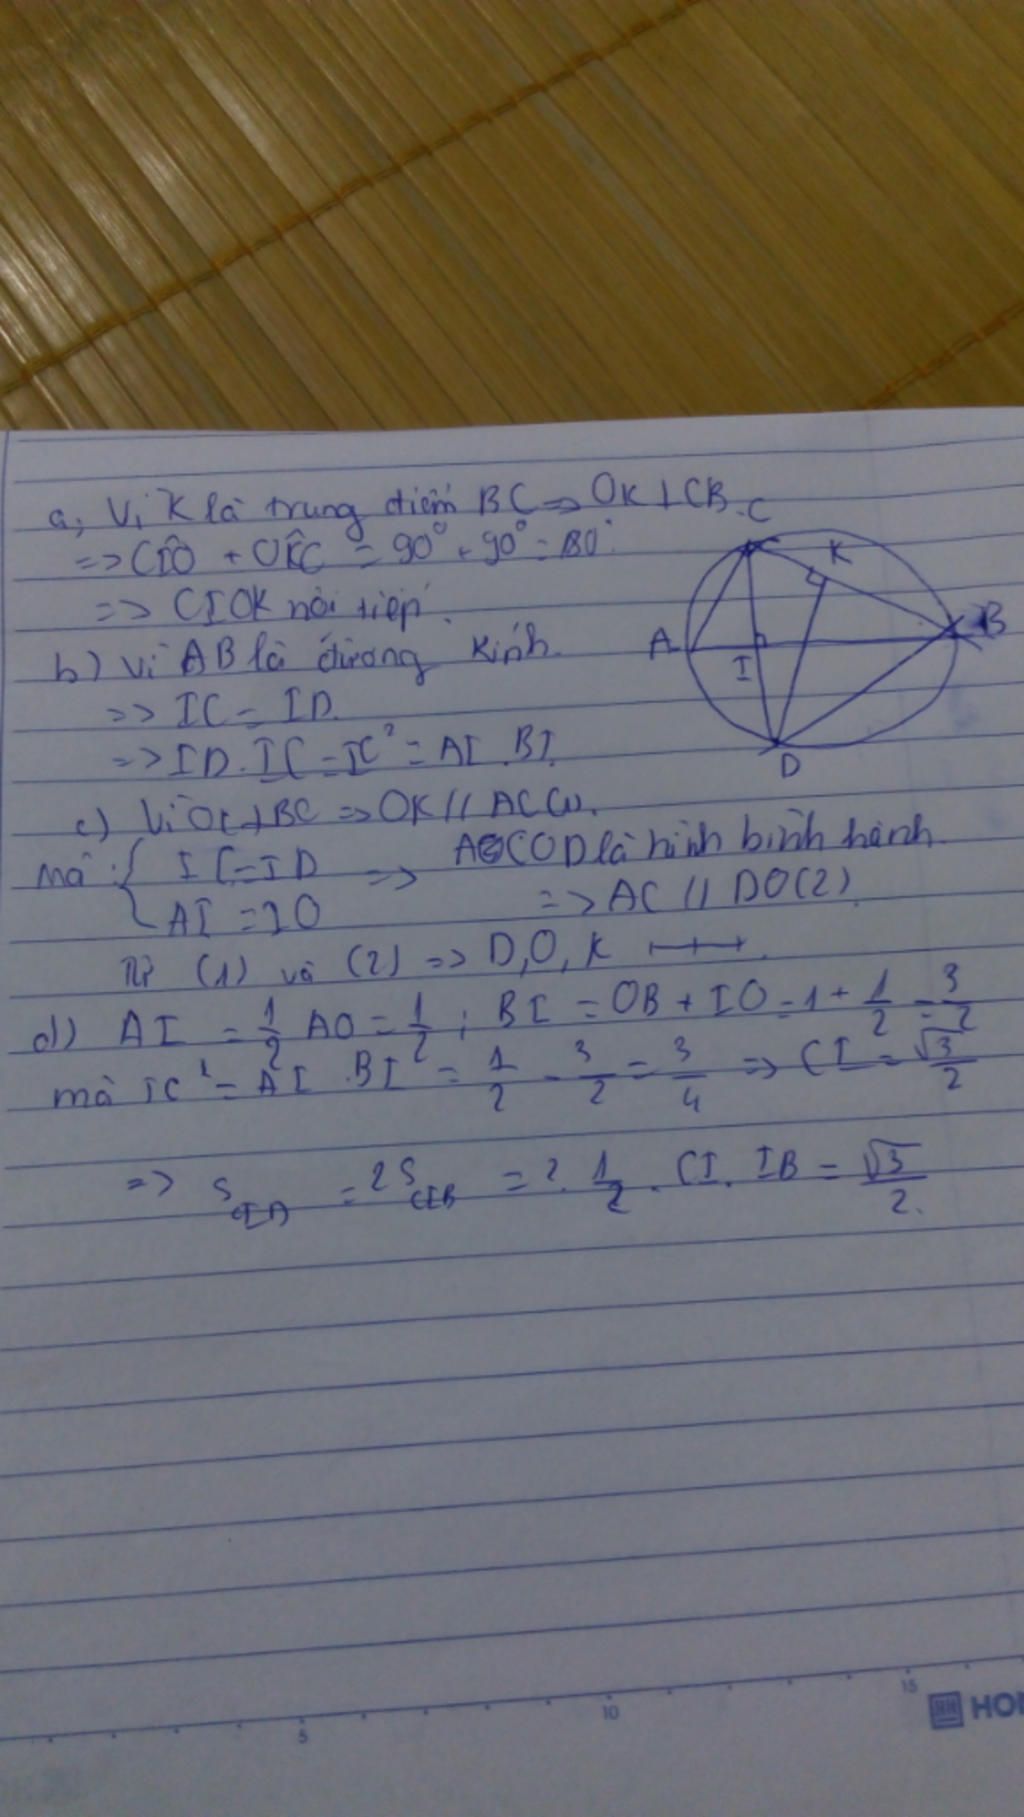 a, Vì K là trung điểm BC => OK ⊥ CB.
=> CÎO + OK̂C = 90° + 90° = 180°.
=> CIOK nội tiếp.
b) Vì AB là đường kính.
=> IC = ID.
=> ID.IC = IC² = AI.BI.
c) Vì OK ⊥ BC => OK // AC (1).
mà { IC = ID
AI = IO
=> ACOD là hình bình hành.
=> AC // DO (2).
Từ (1) và (2) => D, O, K
d) AI = 1/2 AO = 1/2 ; BI = OB + IO = 1 + 1/2 = 3/2
mà IC² = AI.BI = 1/2 . 3/2 = 3/4 => CI = √3/2
=> S = 2S CIB = 2. 1/2 . CI. IB = √3/2.
C
K
A
B
I
D
5
10
15
HH HO